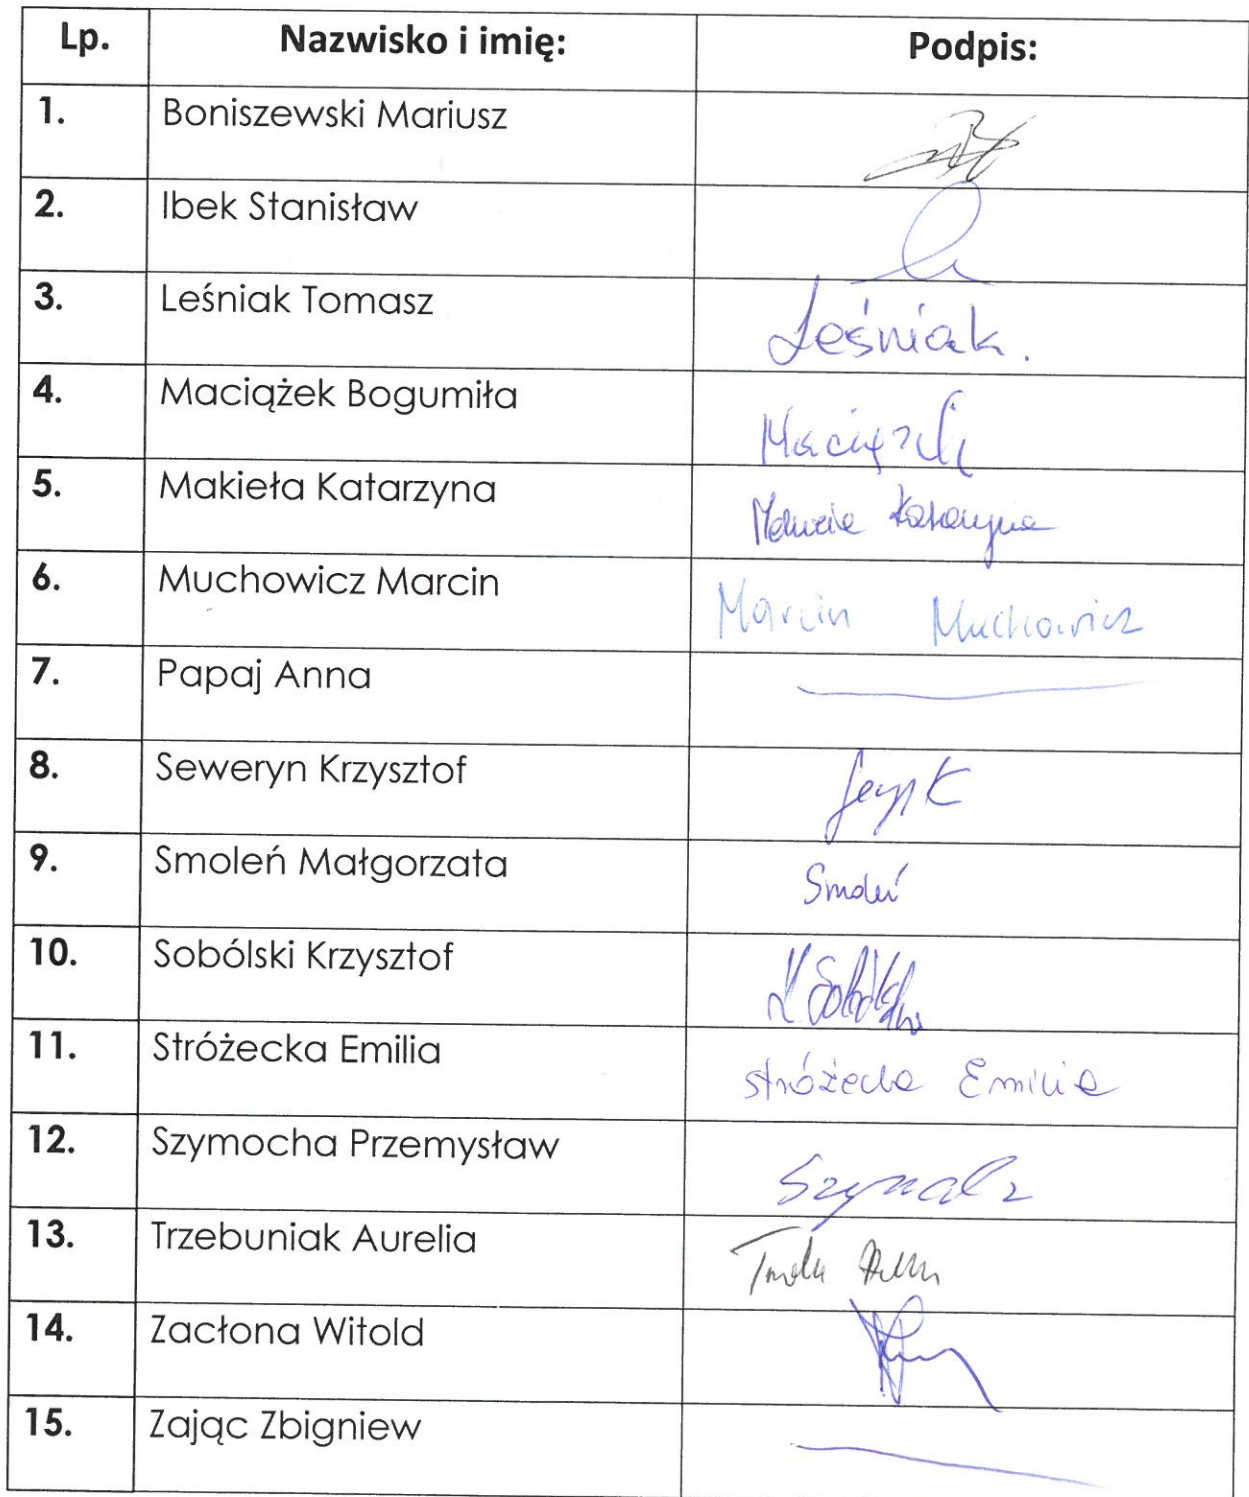 Lp. Nazwisko i imię: Podpis:
1. Boniszewski Mariusz
2. Ibek Stanisław
3. Leśniak Tomasz Leśniak.
4. Maciążek Bogumiła
5. Makieła Katarzyna Katarzyna
6. Muchowicz Marcin Marcin Muchowicz
7. Papaj Anna
8. Seweryn Krzysztof
9. Smoleń Małgorzata Smoleń
10. Sobólski Krzysztof K Sobólski
11. Stróżecka Emilia Stróżecka Emilia
12. Szymocha Przemysław
13. Trzebuniak Aurelia
14. Zacłona Witold
15. Zając Zbigniew